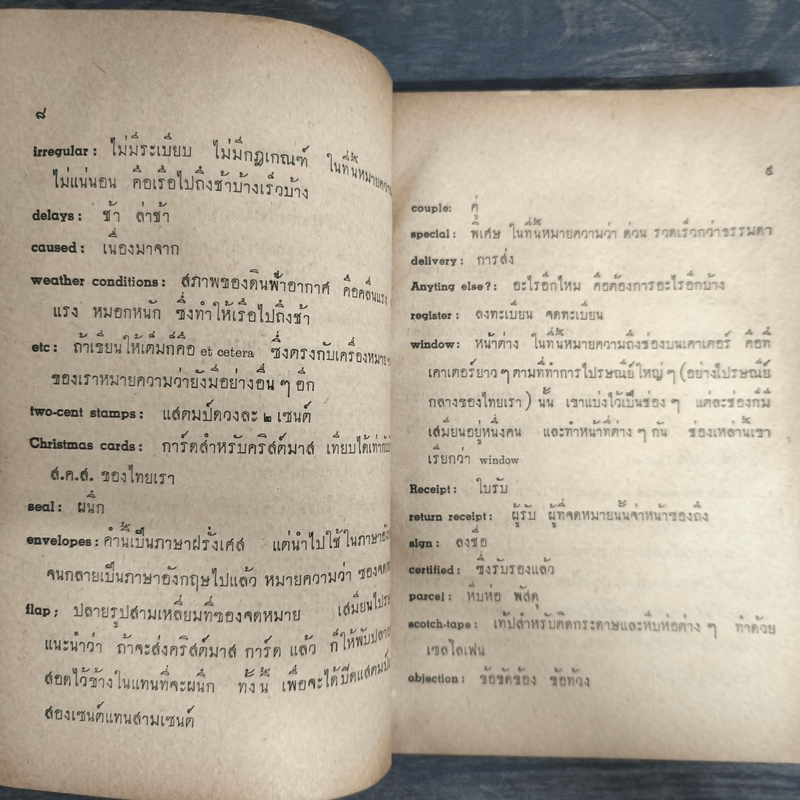 ๘
irregular: ไม่มีระเบียบ ไม่มีกฎเกณฑ์ ในที่นี้หมายความ
ไม่แน่นอน คือเรือไปถึงช้าบ้างเร็วบ้าง
delays: ช้า ล่าช้า
caused: เนื่องมาจาก
weather conditions: สภาพของดินฟ้าอากาศ คือคลื่นแรง
แรง หมอกหนัก ซึ่งทำให้เรือไปถึงช้า
etc: ถ้าเขียนให้เต็มก็คือ et cetera ซึ่งตรงกับเครื่องหมาย
ของเราหมายความว่ายังมีอย่างอื่น ๆ อีก
two-cent stamps: แสตมป์ดวงละ ๒ เซนต์
Christmas cards: การ์ดสำหรับคริสต์มาส เทียบได้เท่ากับ
ส.ค.ส. ของไทยเรา
seal: ผนึก
envelopes: คำนี้เป็นภาษาฝรั่งเศส แต่นำไปใช้ในภาษา
จนกลายเป็นภาษาอังกฤษไปแล้ว หมายความว่า ซองจด
flap: ปลายรูปสามเหลี่ยมที่ซองจดหมาย เสมียนไปร
แนะนำว่า ถ้าจะส่งคริสต์มาส การ์ด แล้ว ก็ให้พับปลาย
สอดไว้ข้างในแทนที่จะผนึก ทั้งนี้ เพื่อจะได้ปิดแสตมป์
สองเซนต์แทนสามเซนต์
๙
couple: คู่
special: พิเศษ ในที่นี้หมายความว่า ด่วน รวดเร็วกว่าธรรมดา
delivery: การส่ง
Anyting else?: อะไรอีกไหม คือต้องการอะไรอีกบ้าง
register: ลงทะเบียน จดทะเบียน
window: หน้าต่าง ในที่นี้หมายความถึงช่องบนเคาเตอร์ คือที่
เคาเตอร์ยาว ๆ ตามที่ทำการไปรษณีย์ใหญ่ ๆ (อย่างไปรษณีย์
กลางของไทยเรา) นั้น เขาแบ่งไว้เป็นช่อง ๆ แต่ละช่องก็มี
เสมียนอยู่หนึ่งคน และทำหน้าที่ต่าง ๆ กัน ช่องเหล่านี้เขา
เรียกว่า window
Receipt: ใบรับ
return receipt: ผู้รับ ผู้ที่จดหมายนั้นจ่าหน้าซองถึง
sign: ลงชื่อ
certified: ซึ่งรับรองแล้ว
parcel: หีบห่อ พัสดุ
scotch-tape: เท้ปสำหรับติดกระดาษและหีบห่อต่าง ๆ ทำด้วย
เซลโลเฟน
objection: ข้อขัดข้อง ข้อท้วง